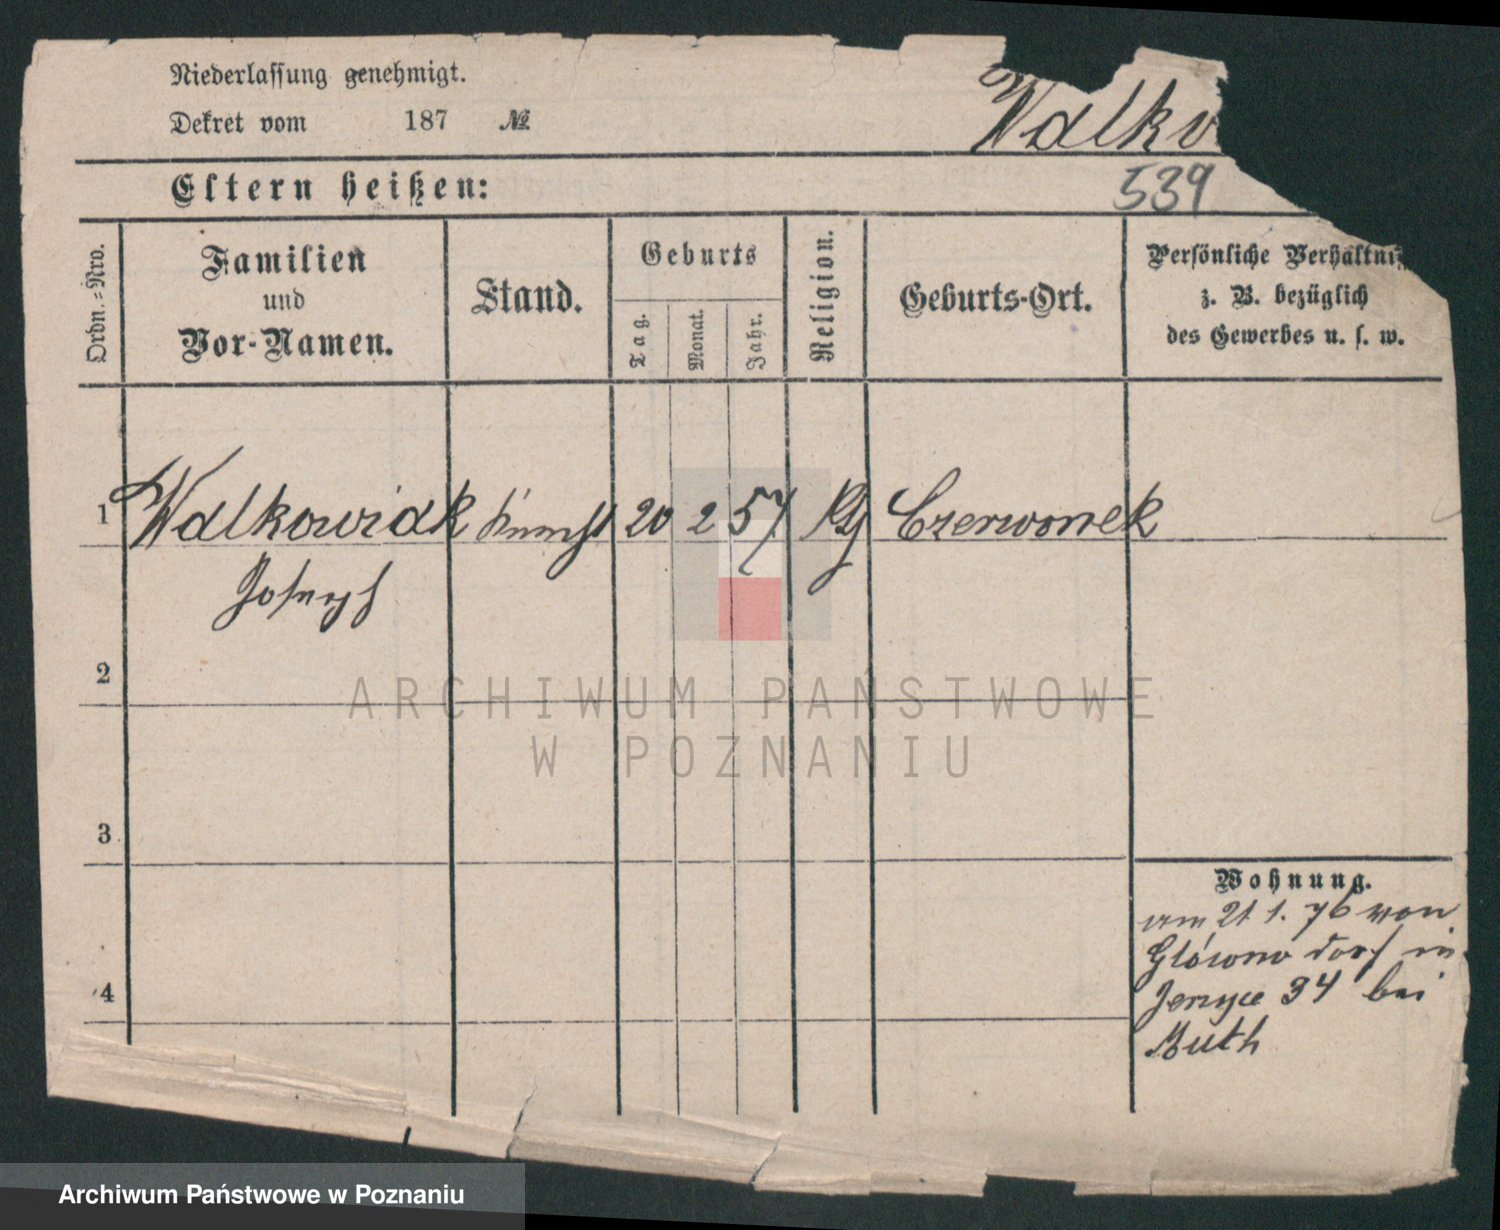 Niederlassung genehmigt.
Dekret vom 187 №
Walko
Eltern heißen:
539
Ordn.=Nro.
Familien
und
Vor-Namen.
Stand.
Geburts
Tag.
Monat.
Jahr.
Religion.
Geburts-Ort.
Persönliche Verhältni
z. B. bezüglich
des Gewerbes u. s. w.
1 Walkowiak 20 2 57 Czerwonek
Joseph
2
3
4
Wohnung.
am 21 1. 76 von
Glówno dorf in
Jerzyce 34 bei
Muth
ARCHIWUM PAŃSTWOWE
W POZNANIU
Archiwum Państwowe w Poznaniu